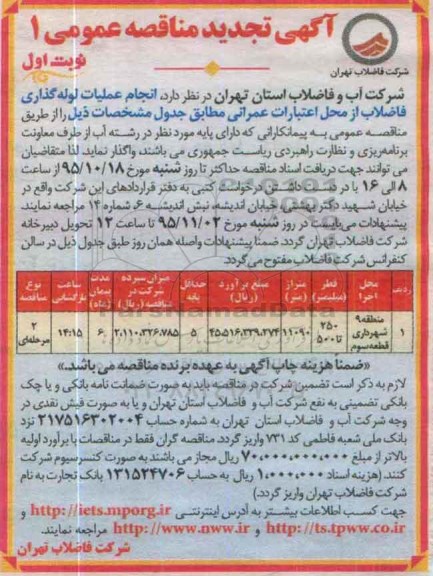 آگهی تجدید مناقصه عمومی ۱
نوبت اول
شرکت فاضلاب تهران
شرکت آب و فاضلاب استان تهران در نظر دارد، انجام عملیات لوله‌گذاری
فاضلاب از محل اعتبارات عمرانی مطابق جدول مشخصات ذیل را از طریق
مناقصه عمومی به پیمانکارانی که دارای پایه مورد نظر در رشته آب از طرف معاونت
برنامه‌ریزی و نظارت راهبردی ریاست جمهوری می باشند، واگذار نماید. لذا متقاضیان
می توانند جهت دریافت اسناد مناقصه حداکثر تا روز شنبه مورخ ۹۵/۱۰/۱۸ از ساعت
۸ الی ۱۶ با در دست داشتن درخواست کتبی به دفتر قراردادهای این شرکت واقع در
خیابان شهید دکتر بهشتی، خیابان اندیشه، نبش اندیشه ۶، شماره ۱۴ مراجعه نمایند.
پیشنهادات می‌بایست در روز شنبه مورخ ۹۵/۱۱/۰۲ تا ساعت ۱۲ تحویل دبیرخانه
شرکت فاضلاب تهران گردد. ضمنا پیشنهادات واصله همان روز طبق جدول ذیل در سالن
کنفرانس شرکت فاضلاب مفتوح می‌گردد.
ردیف محل اجرا قطر (میلیمتر) متراژ (متر) مبلغ برآورد (ریال) حداقل پایه میزان سپرده شرکت در مناقصه (ریال) مدت پیمان (ماه) ساعت بازگشایی نوع مناقصه
۱ منطقه ۹ شهرداری قطعه سوم ۲۵۰ تا ۵۰۰ ۱۱۰۹۰ ۴۵،۵۱۶،۳۳۹،۲۷۴ ۵ ۲،۱۱۰،۳۲۶،۷۸۵ ۶ ۱۴:۱۵ ۲ مرحله‌ای
«ضمنا هزینه چاپ آگهی به عهده برنده مناقصه می باشد.»
لازم به ذکر است تضمین شرکت در مناقصه باید به صورت ضمانت نامه بانکی و یا چک
بانکی تضمینی به نفع شرکت آب و فاضلاب استان تهران و یا به صورت فیش نقدی در
وجه شرکت آب و فاضلاب استان تهران به شماره حساب ۲۱۷۵۱۶۳۰۲۰۰۴ نزد
بانک ملی شعبه فاطمی کد ۷۳۱ واریز گردد. مناقصه گران فقط در مناقصات با برآورد اولیه
بالاتر از مبلغ ۷۰،۰۰۰،۰۰۰،۰۰۰ ریال مجاز می باشند به صورت کنسرسیوم شرکت
کنند. (هزینه اسناد ۱،۰۰۰،۰۰۰ ریال به حساب ۱۳۱۵۲۴۷۰۶ بانک تجارت به نام
شرکت فاضلاب تهران واریز گردد.)
جهت کسب اطلاعات بیشتر به آدرس اینترنتی http://iets.mporg.ir و
http://ts.tpww.co.ir و http://www.nww.ir مراجعه نمایند.
شرکت فاضلاب تهران